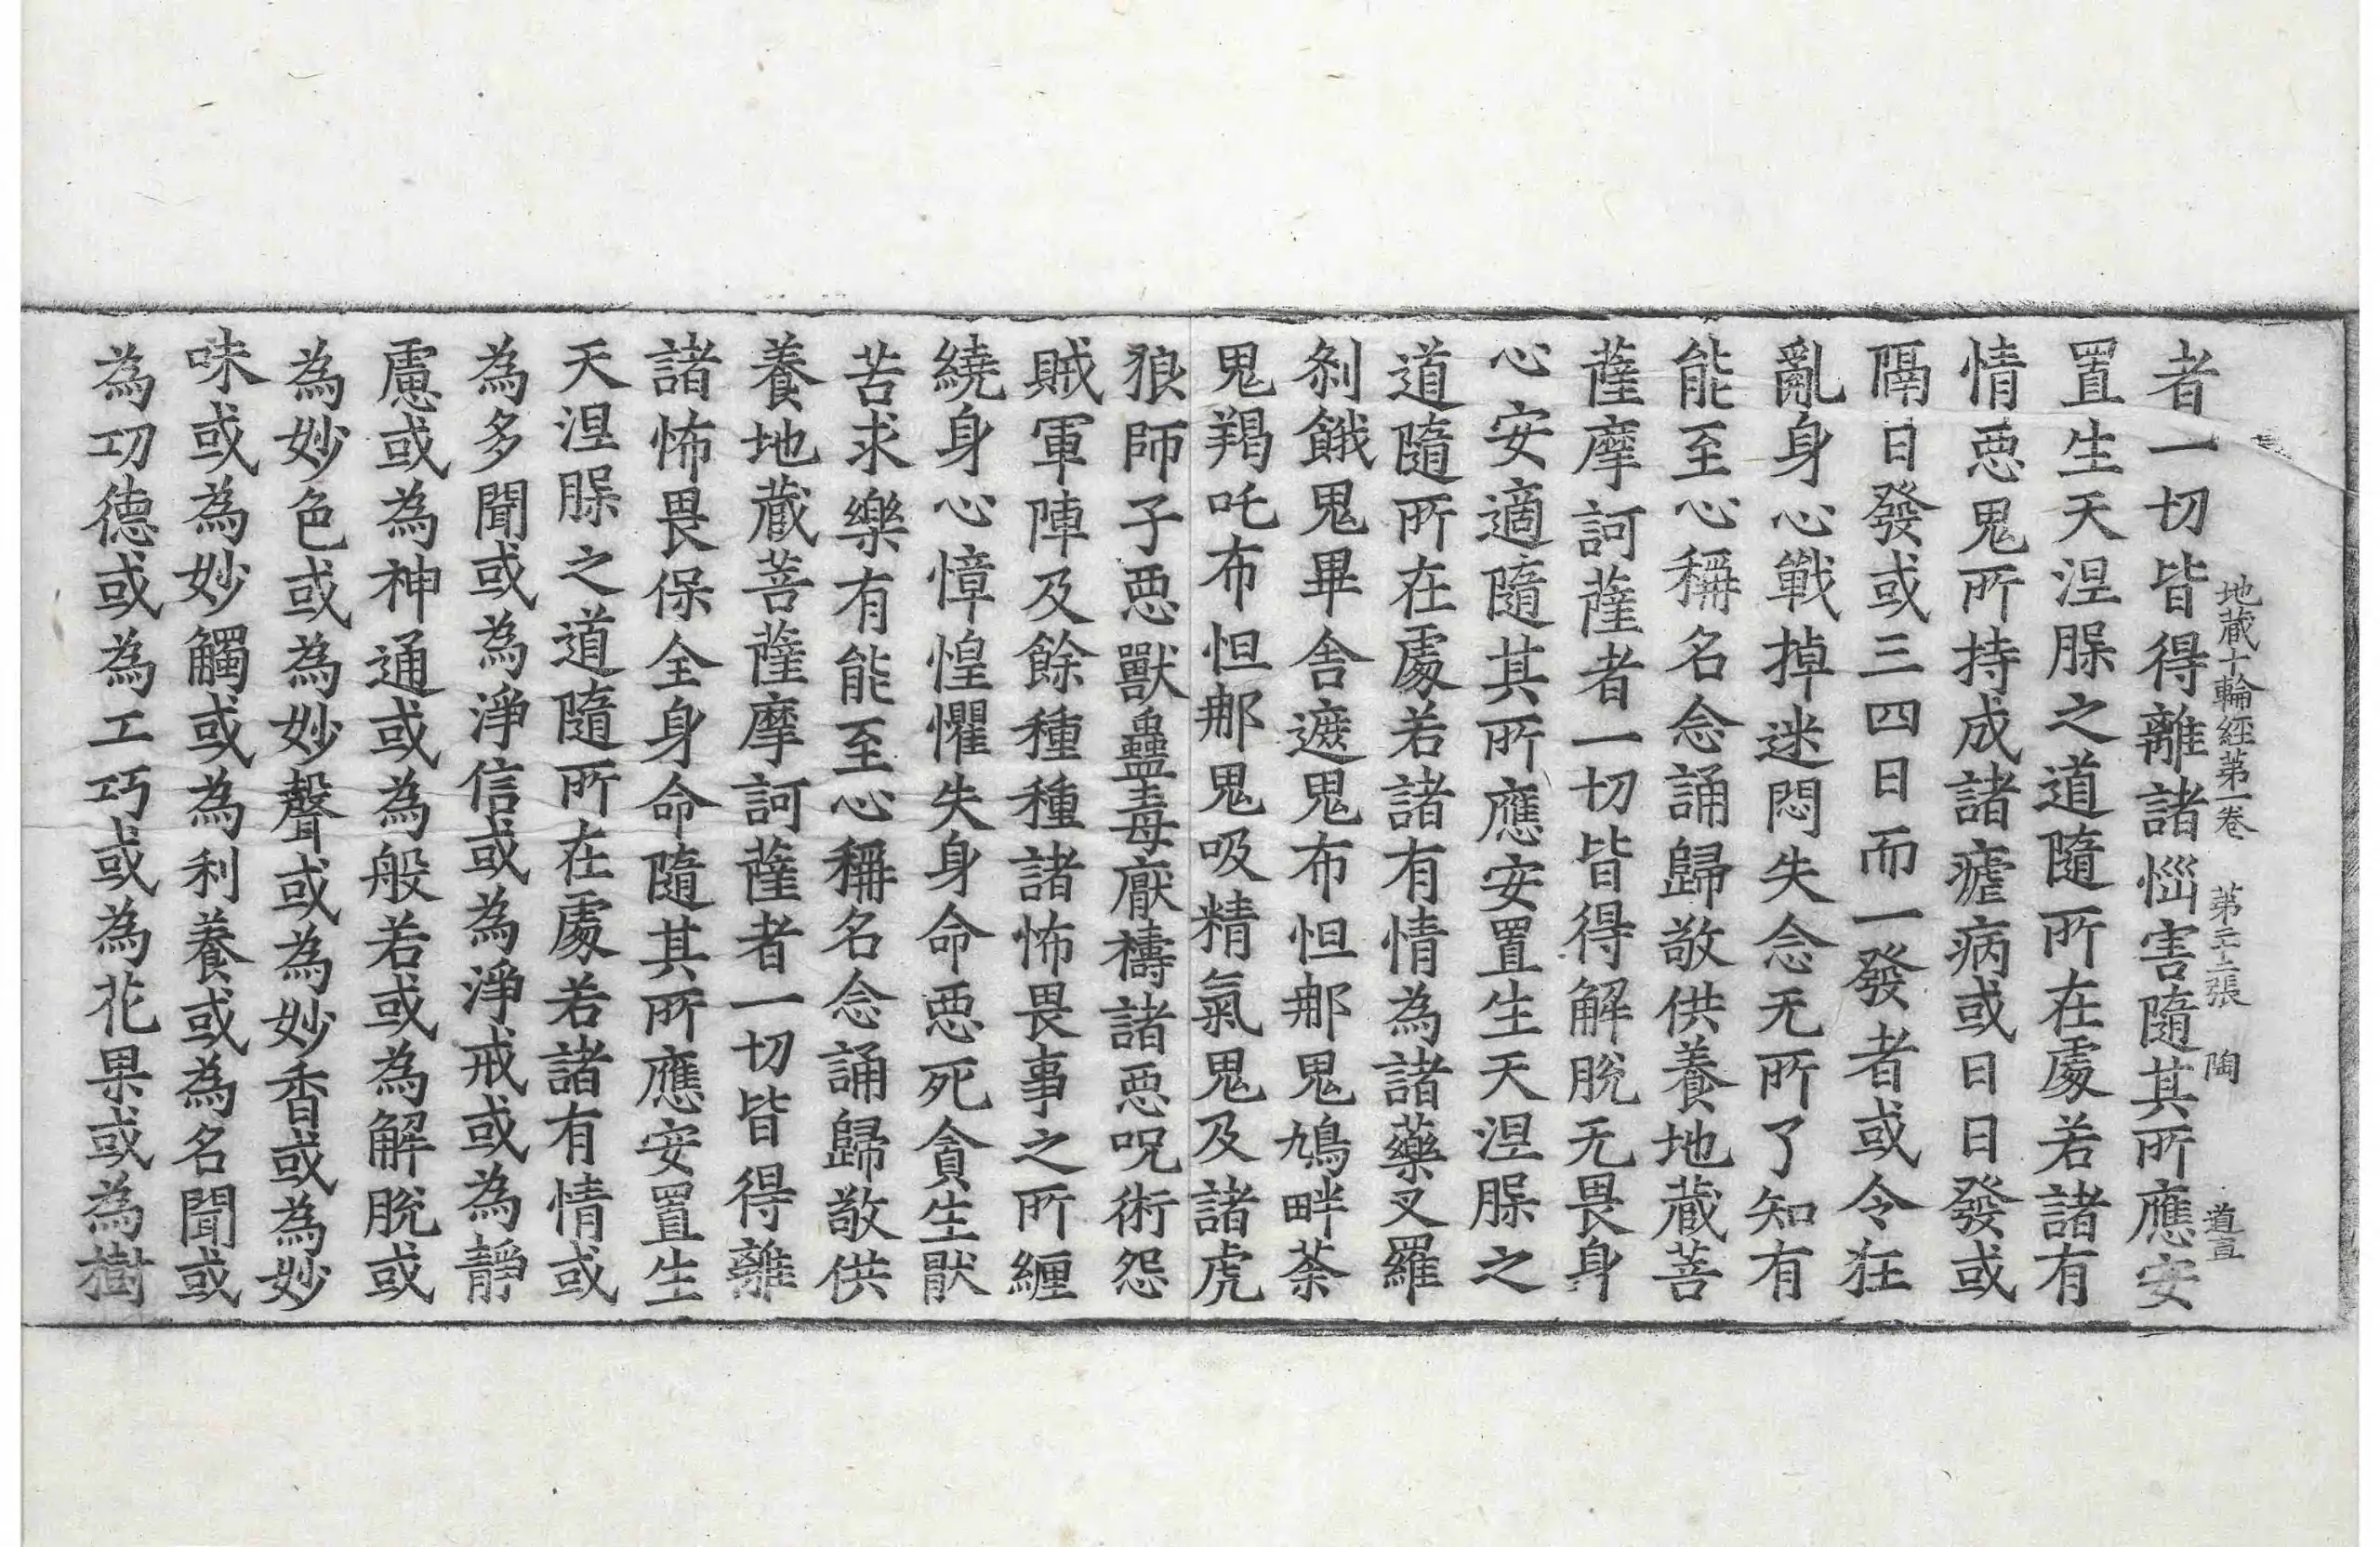 地蔵十輪經第一卷　第二十二張　陶　道宣
者一切皆得離諸惱害隨其所應安
置生天涅膎之道隨所在處若諸有
情惡鬼所持成諸瘧病或日日發或
隔日發或三四日而一發者或令狂
亂身心戰掉迷悶失念无所了知有
能至心稱名念誦歸敬供養地蔵菩
薩摩訶薩者一切皆得解脫无畏身
心安適隨其所應安置生天涅膎之
道隨所在處若諸有情為諸藥叉羅
剎餓鬼畢舍遮鬼布怛那鬼鳩畔荼
鬼羯吒布怛那鬼吸精氣鬼及諸虎
狼師子惡獸蠱毒厭禱諸惡呪術怨
賊軍陣及餘種種諸怖畏事之所纏
繞身心慞惶懼失身命惡死貪生猒
苦求樂有能至心稱名念誦歸敬供
養地蔵菩薩摩訶薩者一切皆得離
諸怖畏保全身命隨其所應安置生
天涅膎之道隨所在處若諸有情或
為多聞或為淨信或為淨戒或為靜
慮或為神通或為般若或為解脫或
為妙色或為妙聲或為妙香或為妙
味或為妙觸或為利養或為名聞或
為功德或為工巧或為花果或為樹